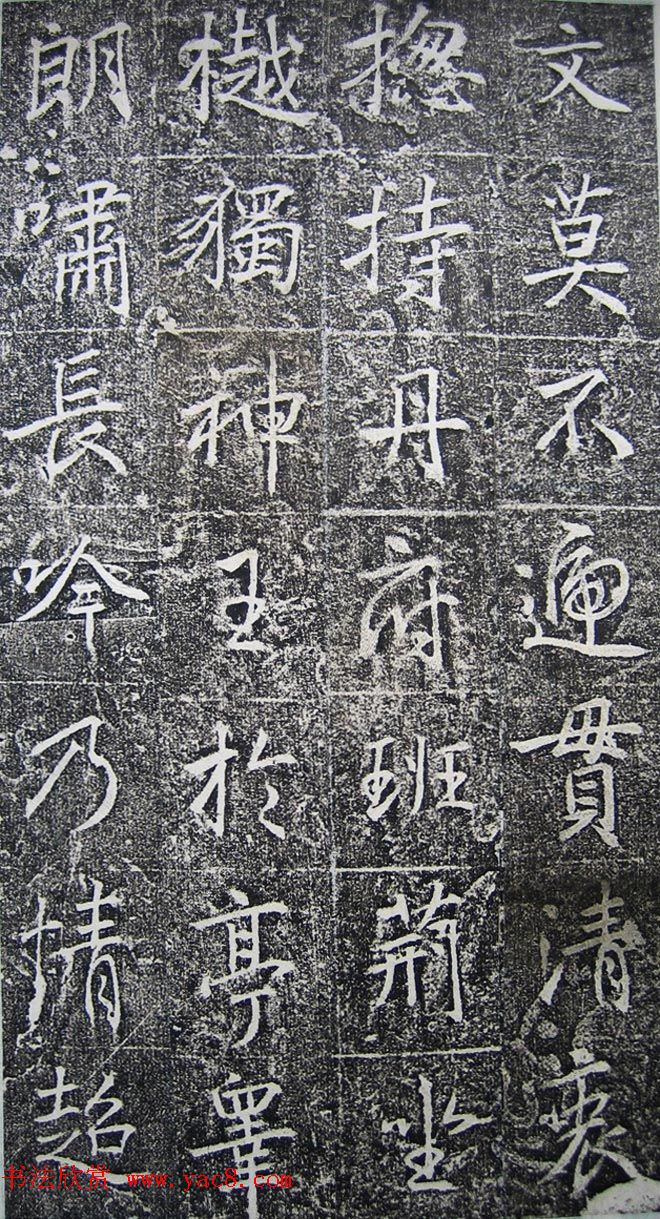 文莫不遍貫清衷
撫持丹府班荊坐
樾獨神王於亭皋
朗嘯長吟乃情超
书法欣赏 www.yac8.com